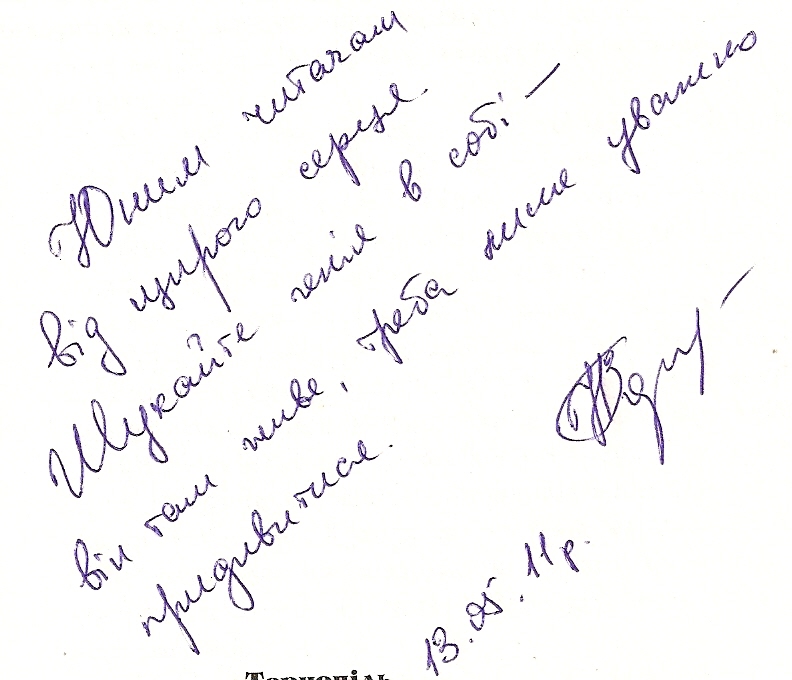 Юним читачам
від щирого серця.
Шукайте генія в собі –
він там живе, треба лише уважно
придивитися.
13.05.11р.
Тернопіль